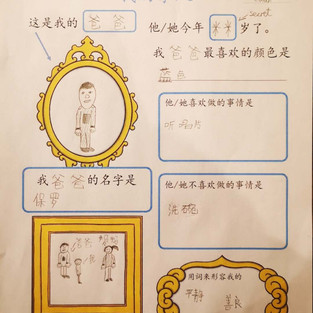 这是我的 爸爸
他/她今年 岁了。
secret
我 爸爸 最喜欢的颜色是
蓝色
他/她喜欢做的事情是
听唱片
我 爸爸 的名字是
保罗
他/她不喜欢做的事情是
洗碗
爸爸
用词来形容我的
平静
善良